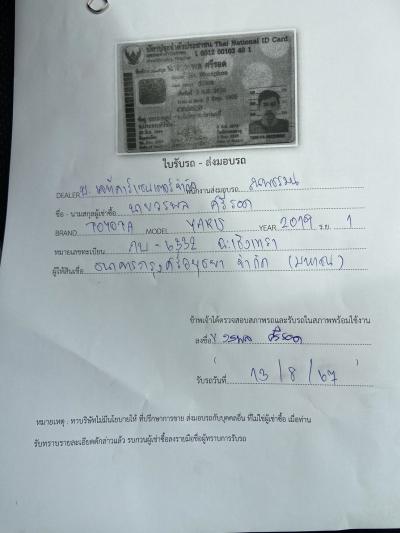 บัตรประจำตัวประชาชน Thai National ID Card
ศรีรอด
ใบรับรถ - ส่งมอบรถ
DEALER พนักงานส่งมอบรถ
ชื่อ - นามสกุลผู้เช่าซื้อ นายวรพล ศรีรอด
BRAND TOYOTA MODEL YARIS YEAR 2019 ร.ย. 1
หมายเลขทะเบียน กบ - 6332 ฉะเชิงเทรา
ผู้ให้สินเชื่อ ธนาคารกรุงศรีอยุธยา จำกัด (มหาชน)
ข้าพเจ้าได้ตรวจสอบสภาพรถและรับรถในสภาพพร้อมใช้งาน
ลงชื่อ วรพล ศรีรอด
( )
รับรถวันที่ 13 / 8 / 67
หมายเหตุ : ทางบริษัทไม่มีนโยบายให้ ที่ปรึกษาการขาย ส่งมอบรถกับบุคคลอื่น ที่ไม่ใช่ผู้เช่าซื้อ เมื่อท่าน
รับทราบรายละเอียดดังกล่าวแล้ว รบกวนผู้เช่าซื้อลงรายมือชื่อผู้ทราบการรับรถ